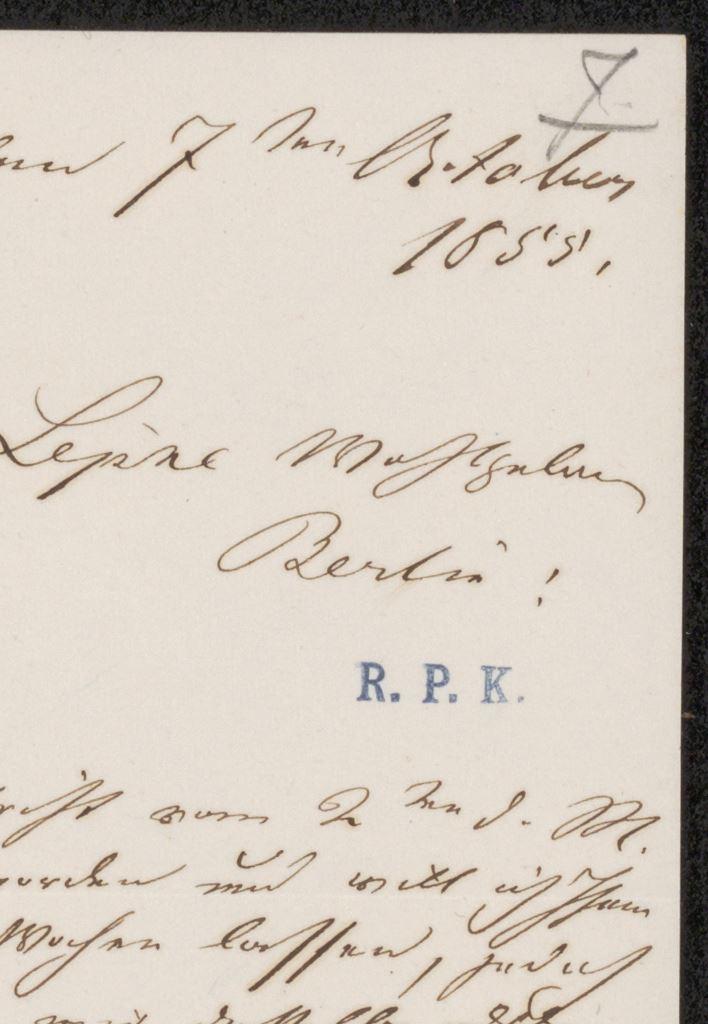 7.
den 7ten October
1855.
Lepke Wohlgeboren
Berlin!
R. P. K.
vom 2ten d. M.
worden und will ich Ihnen
Wochen lassen, jedoch